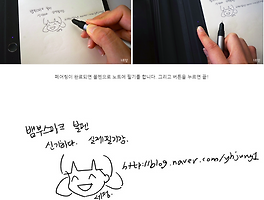 페어링이 완료되면 볼펜으로 노트에 필기를 합니다. 그리고 버튼을 누르면 끝!
뱀부스파크 볼펜
신기하다. 실제필기감.
http://blog.naver.com/yhjung1
세정.